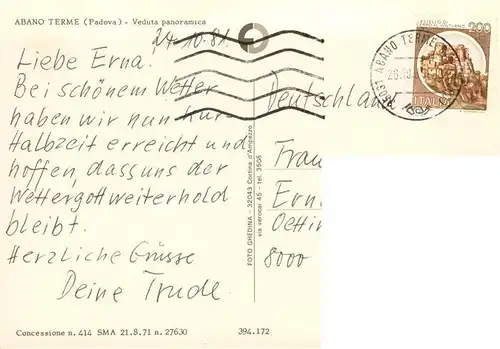 ABANO TERME (Padova) - Veduta panoramica
24.10.81.
Liebe Erna.
Bei schönem Wetter
haben wir nun Kur-
Halbzeit erreicht und
hoffen, dass uns der
Wettergott weiterhold
bleibt.
Herzliche Grüsse
Deine Trude.
Concessione n. 414 SMA 21.8.71 n. 27630
394.172
FOTO GHEDINA - 32043 Cortina d'Ampezzo
via verocai 45 - tel. 3506
Deutschland
Frau
Ern
Oetti
8000
ABANO TERME
200
ITALIA